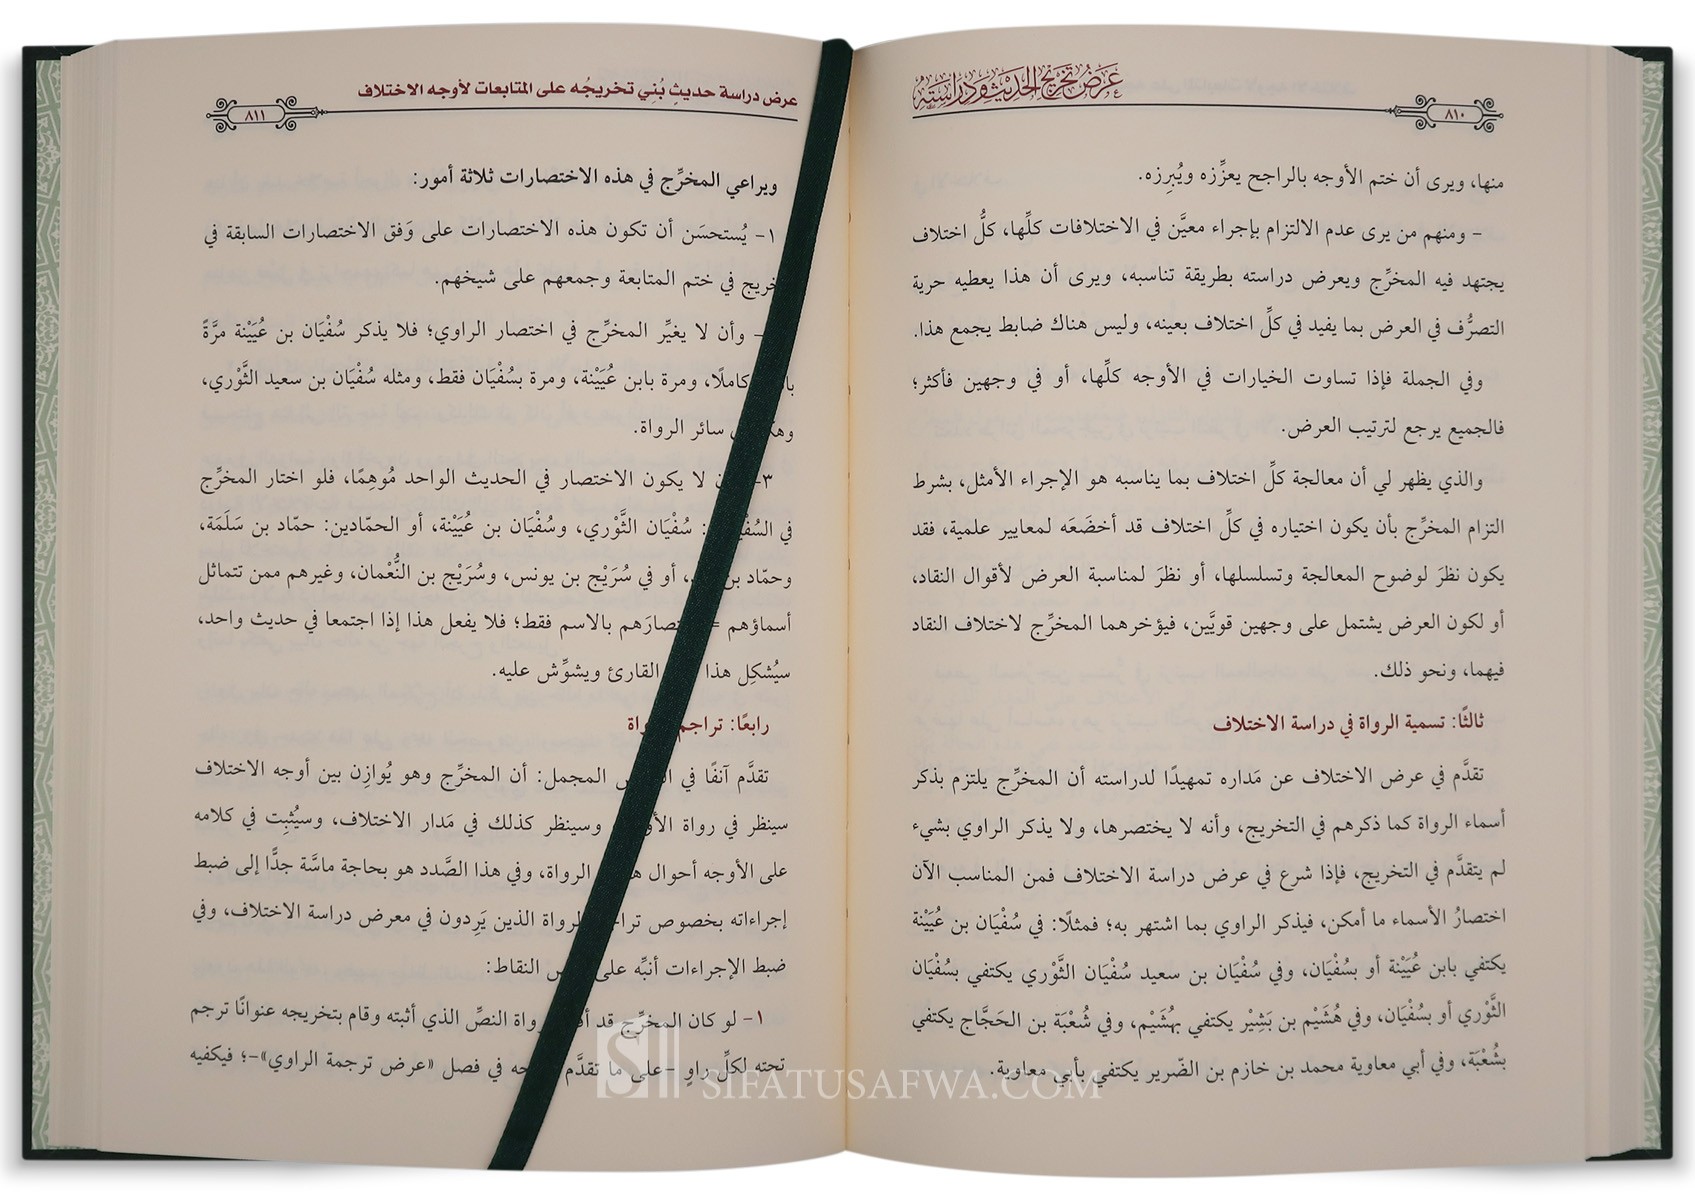 عَرضُ تَخريج الحَديثِ وَدِرَاسَتِه
٨١٠
منها، ويرى أن ختم الأوجه بالراجح يعزِّزه ويُبرِزه.
- ومنهم من يرى عدم الالتزام بإجراء معيَّن في الاختلافات كلِّها، كلُّ اختلاف
يجتهد فيه المخرِّج ويعرض دراسته بطريقة تناسبه، ويرى أن هذا يعطيه حرية
التصرُّف في العرض بما يفيد في كلِّ اختلاف بعينه، وليس هناك ضابط يجمع هذا.
وفي الجملة فإذا تساوت الخيارات في الأوجه كلِّها، أو في وجهين فأكثر؛
فالجميع يرجع لترتيب العرض.
والذي يظهر لي أن معالجة كلِّ اختلاف بما يناسبه هو الإجراء الأمثل، بشرط
التزام المخرِّج بأن يكون اختياره في كلِّ اختلاف قد أخضَعَه لمعايير علمية، فقد
يكون نظرَ لوضوح المعالجة وتسلسلها، أو نظرَ لمناسبة العرض لأقوال النقاد،
أو لكون العرض يشتمل على وجهين قويَّين، فيؤخرهما المخرِّج لاختلاف النقاد
فيهما، ونحو ذلك.
ثالثًا: تسمية الرواة في دراسة الاختلاف
تقدَّم في عرض الاختلاف عن مَداره تمهيدًا لدراسته أن المخرِّج يلتزم بذكر
أسماء الرواة كما ذكرهم في التخريج، وأنه لا يختصرها، ولا يذكر الراوي بشيء
لم يتقدَّم في التخريج، فإذا شرع في عرض دراسة الاختلاف فمن المناسب الآن
اختصارُ الأسماء ما أمكن، فيذكر الراوي بما اشتهر به؛ فمثلًا: في سُفْيَان بن عُيَيْنة
يكتفي بابن عُيَيْنة أو بسُفْيَان، وفي سُفْيَان بن سعيد سُفْيَان الثَّوْري يكتفي بسُفْيَان
الثَّوْري أو بسُفْيَان، وفي هُشَيْم بن بَشِيْر يكتفي بهُشَيْم، وفي شُعْبَة بن الحَجَّاج يكتفي
بشُعْبَة، وفي أبي معاوية محمد بن خازم بن الضّرير يكتفي بأبي معاوية.
عرض دراسة حديثٍ بُنِي تخريجُه على المتابعات لأوجه الاختلاف
٨١١
ويراعي المخرِّج في هذه الاختصارات ثلاثة أمور:
١- يُستحسَن أن تكون هذه الاختصارات على وَفق الاختصارات السابقة في
خريج في ختم المتابعة وجمعهم على شيخهم.
- وأن لا يغيِّر المخرِّج في اختصار الراوي؛ فلا يذكر سُفْيَان بن عُيَيْنة مرَّةً
كاملًا، ومرة بابن عُيَيْنة، ومرة بسُفْيَان فقط، ومثله سُفْيَان بن سعيد الثَّوْري،
سائر الرواة.
٣- لا يكون الاختصار في الحديث الواحد مُوهِمًا، فلو اختار المخرِّج
في : سُفْيَان الثَّوْري، وسُفْيَان بن عُيَيْنة، أو الحمّادين: حمّاد بن سَلَمَة،
وحمّاد بن ، أو في سُرَيْج بن يونس، وسُرَيْج بن النُّعْمان، وغيرهم ممن تتماثل
أسماؤهم = تصارَهم بالاسم فقط؛ فلا يفعل هذا إذا اجتمعا في حديث واحد،
سيُشكِل هذا القارئ ويشوِّش عليه.
رابعًا: تراجم واة
تقدَّم آنفًا في المجمل: أن المخرِّج وهو يُوازِن بين أوجه الاختلاف
سينظر في رواة وسينظر كذلك في مَدار الاختلاف، وسيُثبِت في كلامه
على الأوجه أحوال الرواة، وفي هذا الصَّدد هو بحاجة ماسَّة جدًّا إلى ضبط
إجراءاته بخصوص الرواة الذين يَرِدون في معرض دراسة الاختلاف، وفي
ضبط الإجراءات أنبِّه على النقاط:
١- لو كان المخرِّج قد رواة النصِّ الذي أثبته وقام بتخريجه عنوانًا ترجم
تحته لكلِّ راوٍ -على ما تقدَّم في فصل «عرض ترجمة الراوي»-؛ فيكفيه
SIFATUSAFWA.COM